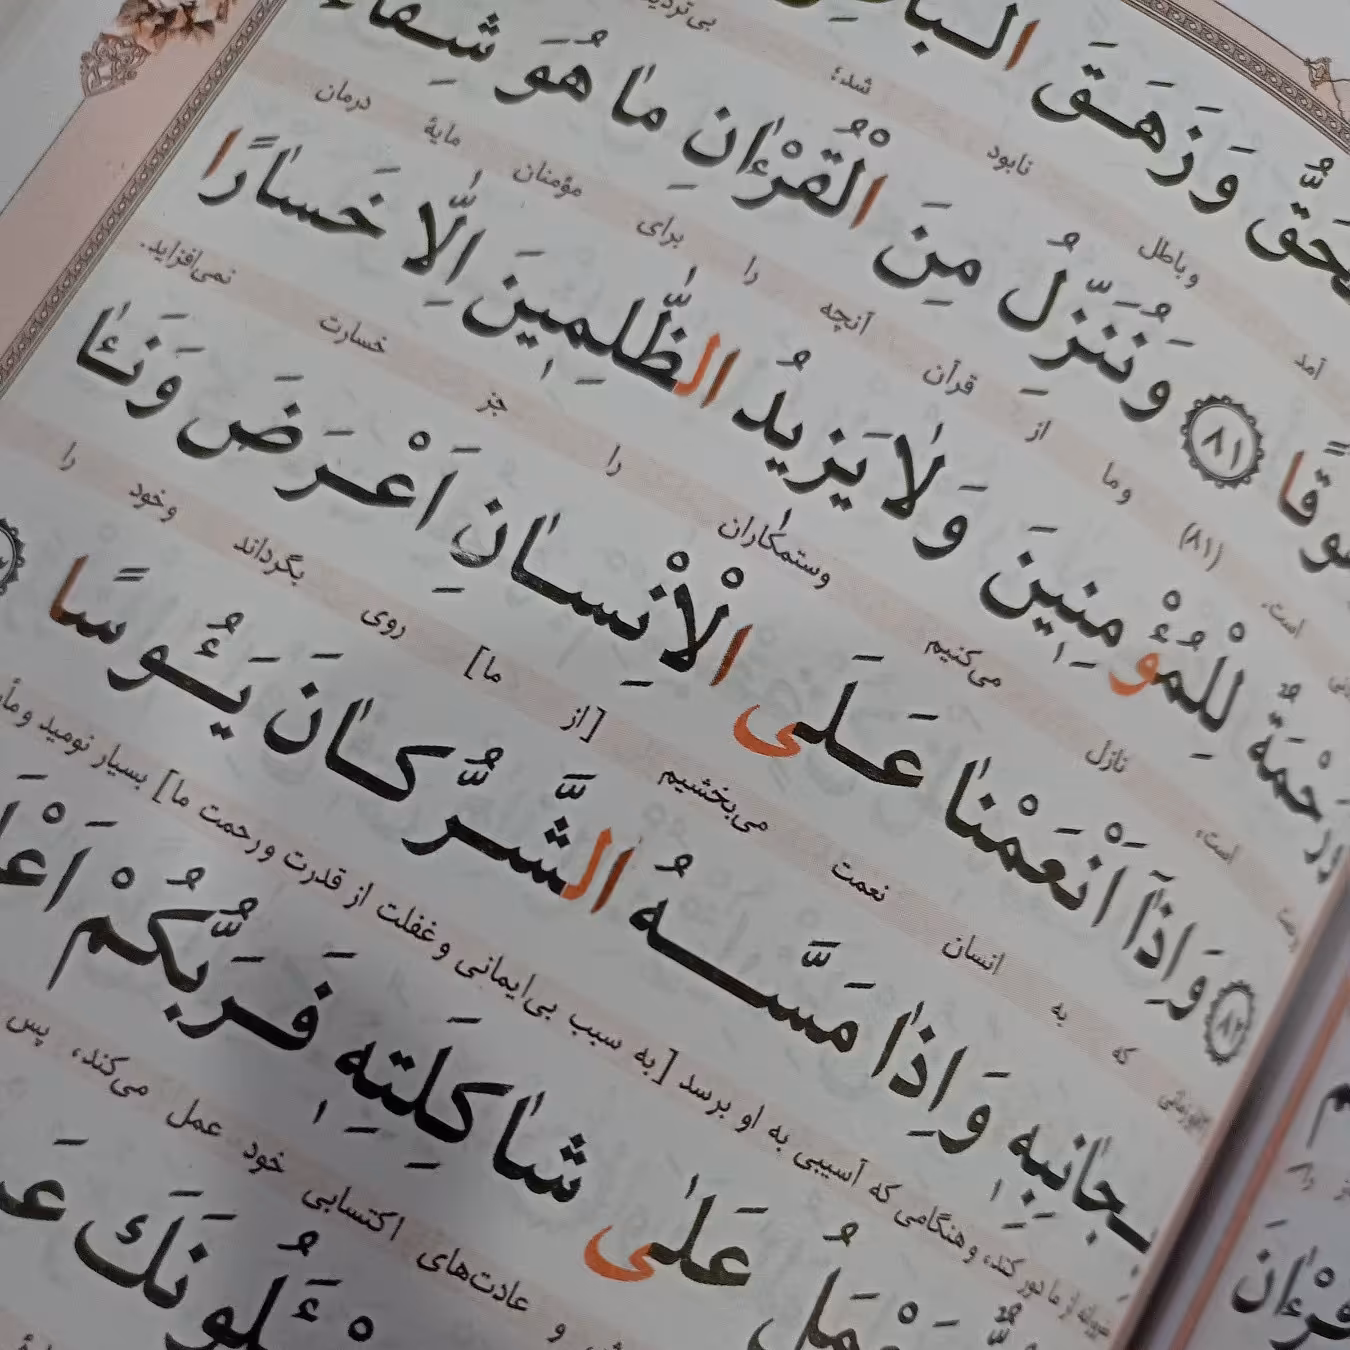 وَزَهَقَ
شد؛ نابود وباطل آمد
وَنُنَزِّلُ مِنَ الْقُرْءٰانِ مٰا هُوَ شِفٰاءٌ
است. (۸۱) وما از قرآن آنچه را برای مؤمنان مایهٔ درمان
وَرَحْمَةٌ لِلْمُؤْمِنِينَ وَلٰا يَزِيدُ الظّٰلِمِينَ اِلّٰا خَسٰارًا
است، نازل می‌کنیم وستمکاران را جز خسارت نمی‌افزاید.
﴿٨٢﴾ وَاِذٰٓا اَنْعَمْنٰا عَلَى الْاِنْسٰانِ اَعْرَضَ وَنَـٰٔا
که به انسان نعمت می‌بخشیم [از ما] روی بگرداند وخود را
بِجٰانِبِهِ وَاِذٰا مَسَّهُ الشَّرُّ كٰانَ يَـُٔوسًا
از ما دور کند، وهنگامی که آسیبی به او برسد [به سبب بی‌ایمانی وغفلت از قدرت ورحمت ما] بسیار نومید
عَلىٰ شٰاكِلَتِهِ فَرَبُّكُمْ
و عادت‌های اکتسابی خود عمل می‌کند، پس